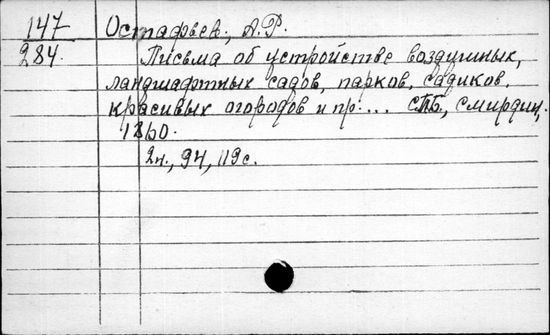 147 Остафьев, А.Р.
284. Письма об устройстве воздушных,
ландшафтных садов, парков, садиков,
красивых огородов и пр.... СПБ, Смирдин,
1860.
2н., 94, 119 с.